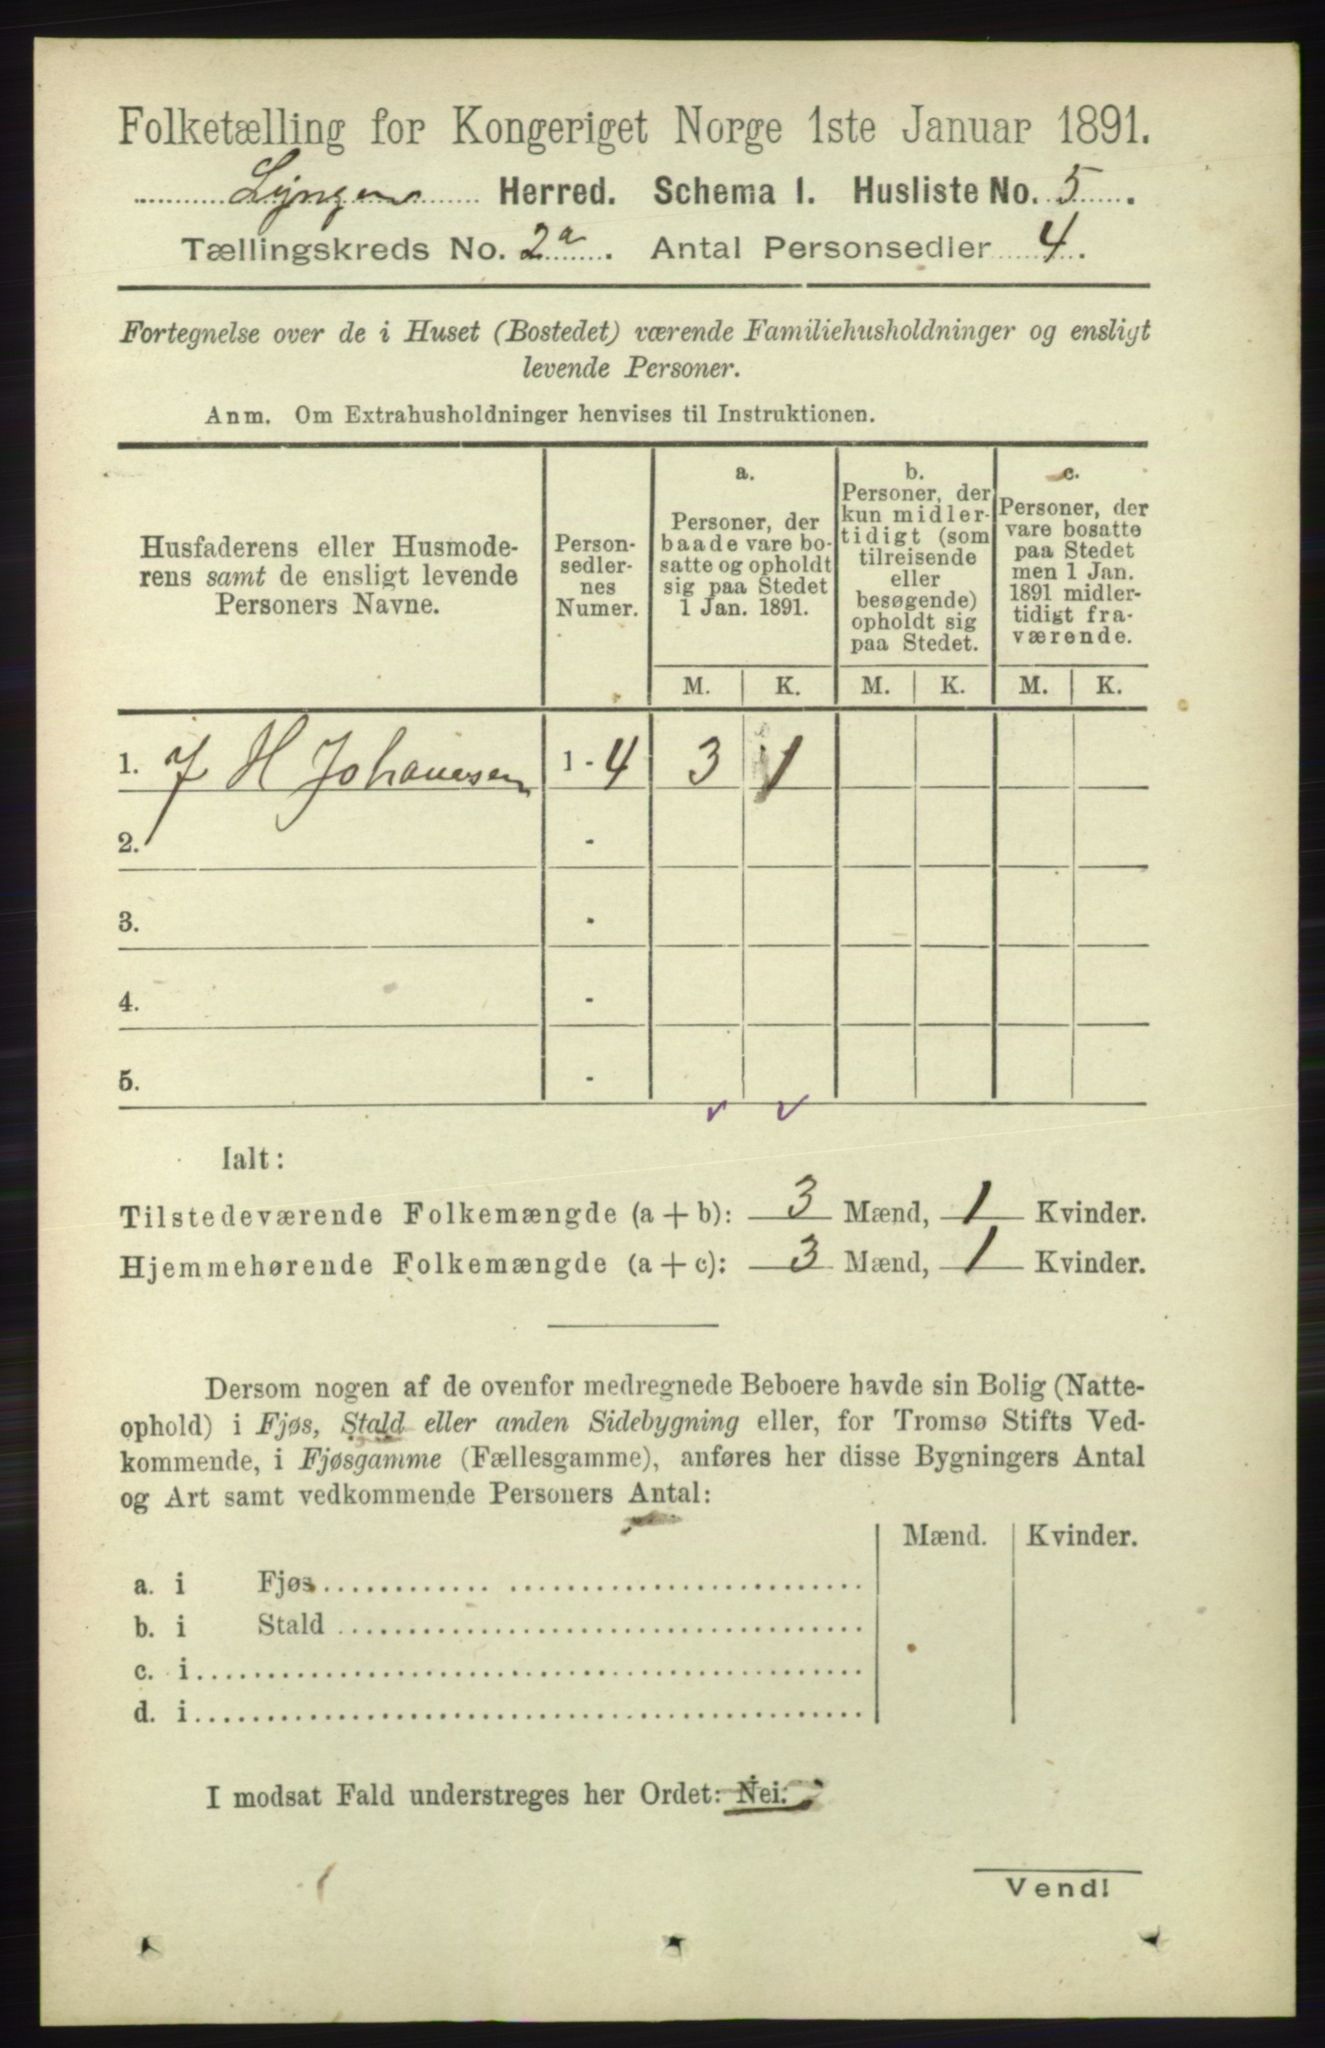 Folketælling for Kongeriget Norge 1ste Januar 1891.
Lyngen Herred. Schema I. Husliste No. 5.
Tællingskreds No. 2a. Antal Personsedler 4.
Fortegnelse over de i Huset (Bostedet) værende Familiehusholdninger og ensligt
levende Personer.
Anm. Om Extrahusholdninger henvises til Instruktionen.
Husfaderens eller Husmode-
rens samt de ensligt levende
Personers Navne.
Person-
sedler-
nes
Numer.
a.
Personer, der
baade vare bo-
satte og opholdt
sig paa Stedet
1 Jan. 1891.
b.
Personer, der
kun midler-
tidigt (som
tilreisende
eller
besøgende)
opholdt sig
paa Stedet.
c.
Personer, der
vare bosatte
paa Stedet
men 1 Jan.
1891 midler-
tidigt fra-
værende.
M. K. M. K. M. K.
1. J H Johanesen 1 - 4 3 1
2. -
3. -
4. -
5. -
Ialt:
Tilstedeværende Folkemængde (a + b): 3 Mænd, 1 Kvinder.
Hjemmehørende Folkemængde (a + c): 3 Mænd, 1 Kvinder.
Dersom nogen af de ovenfor medregnede Beboere havde sin Bolig (Natte-
ophold) i Fjøs, Stald eller anden Sidebygning eller, for Tromsø Stifts Ved-
kommende, i Fjøsgamme (Fællesgamme), anføres her disse Bygningers Antal
og Art samt vedkommende Personers Antal:
Mænd. Kvinder.
a. i Fjøs
b. i Stald
c. i
d. i
I modsat Fald understreges her Ordet: Nei.
Vend!